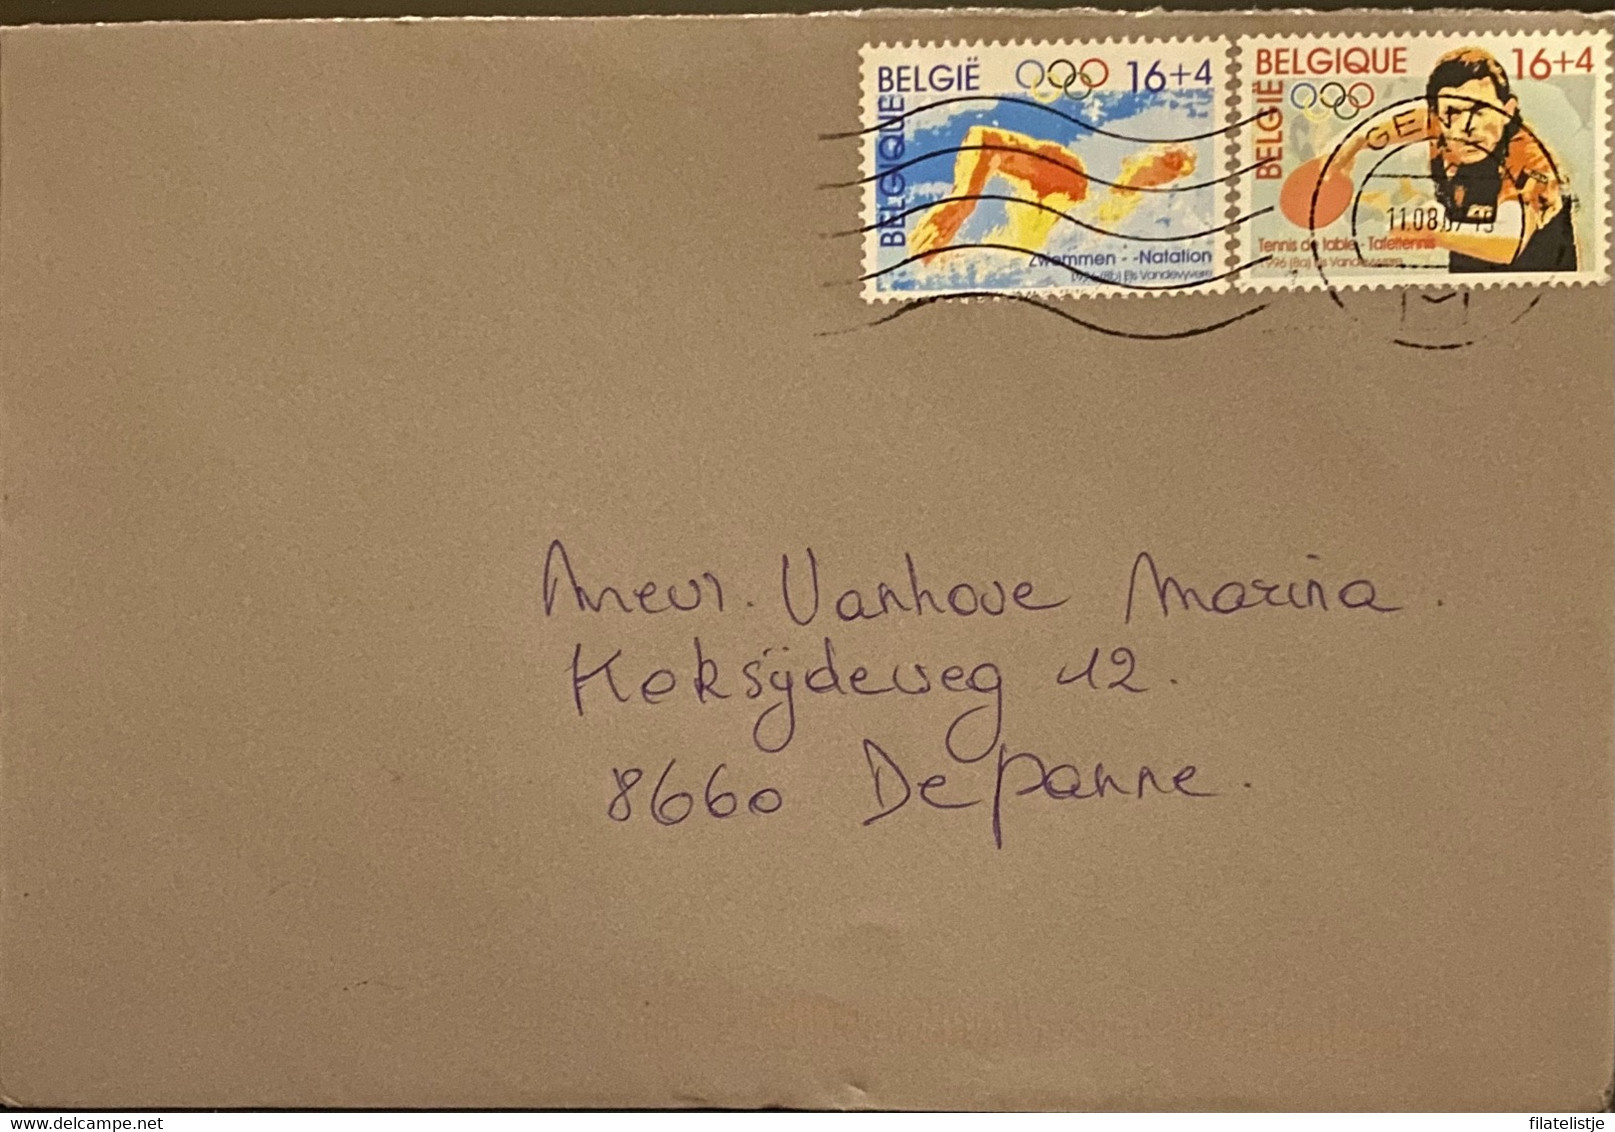 BELGIË 16+4
BELGIQUE
Zwemmen - -Natation
1996 (8b) Els Vandevyvere
BELGIQUE 16+4
BELGIË
Tennis de table - Tafeltennis
1996 (8a) Els Vandevyvere
GENT
11.08.07
Mevr. Vanhove Marina.
Koksijdeweg 12.
8660 De Panne.
www.delcampe.net
filatelistje